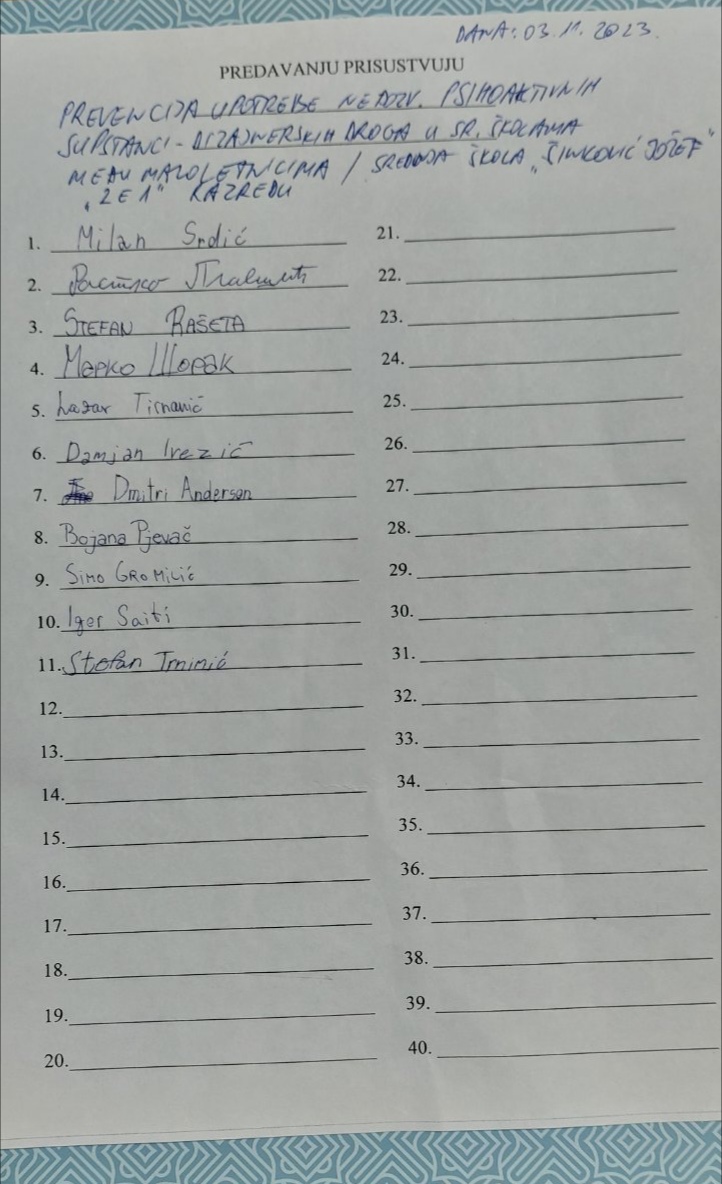 DANA: 03.11.2023.
PREDAVANJU PRISUSTVUJU
PREVENCIJA UPOTREBE NEDOZV. PSIHOAKTIVNIH
SUPSTANCI - DIZAJNERSKIH DROGA U SR. ŠKOLAMA
MEĐU MALOLETNICIMA / SREDNJA ŠKOLA „
„2E1" RAZREDU
1. Milan Srdić
2.
3. STEFAN RAŠETA
4. Марко Шорак
5. Lazar
6. Damjan Irezić
7. Dmitri Anderson
8. Bojana Pjevač
9. SIMO GROMILIĆ
10. Igor Saiti
11. Stefan Trninić
12.
13.
14.
15.
16.
17.
18.
19.
20.
21.
22.
23.
24.
25.
26.
27.
28.
29.
30.
31.
32.
33.
34.
35.
36.
37.
38.
39.
40.